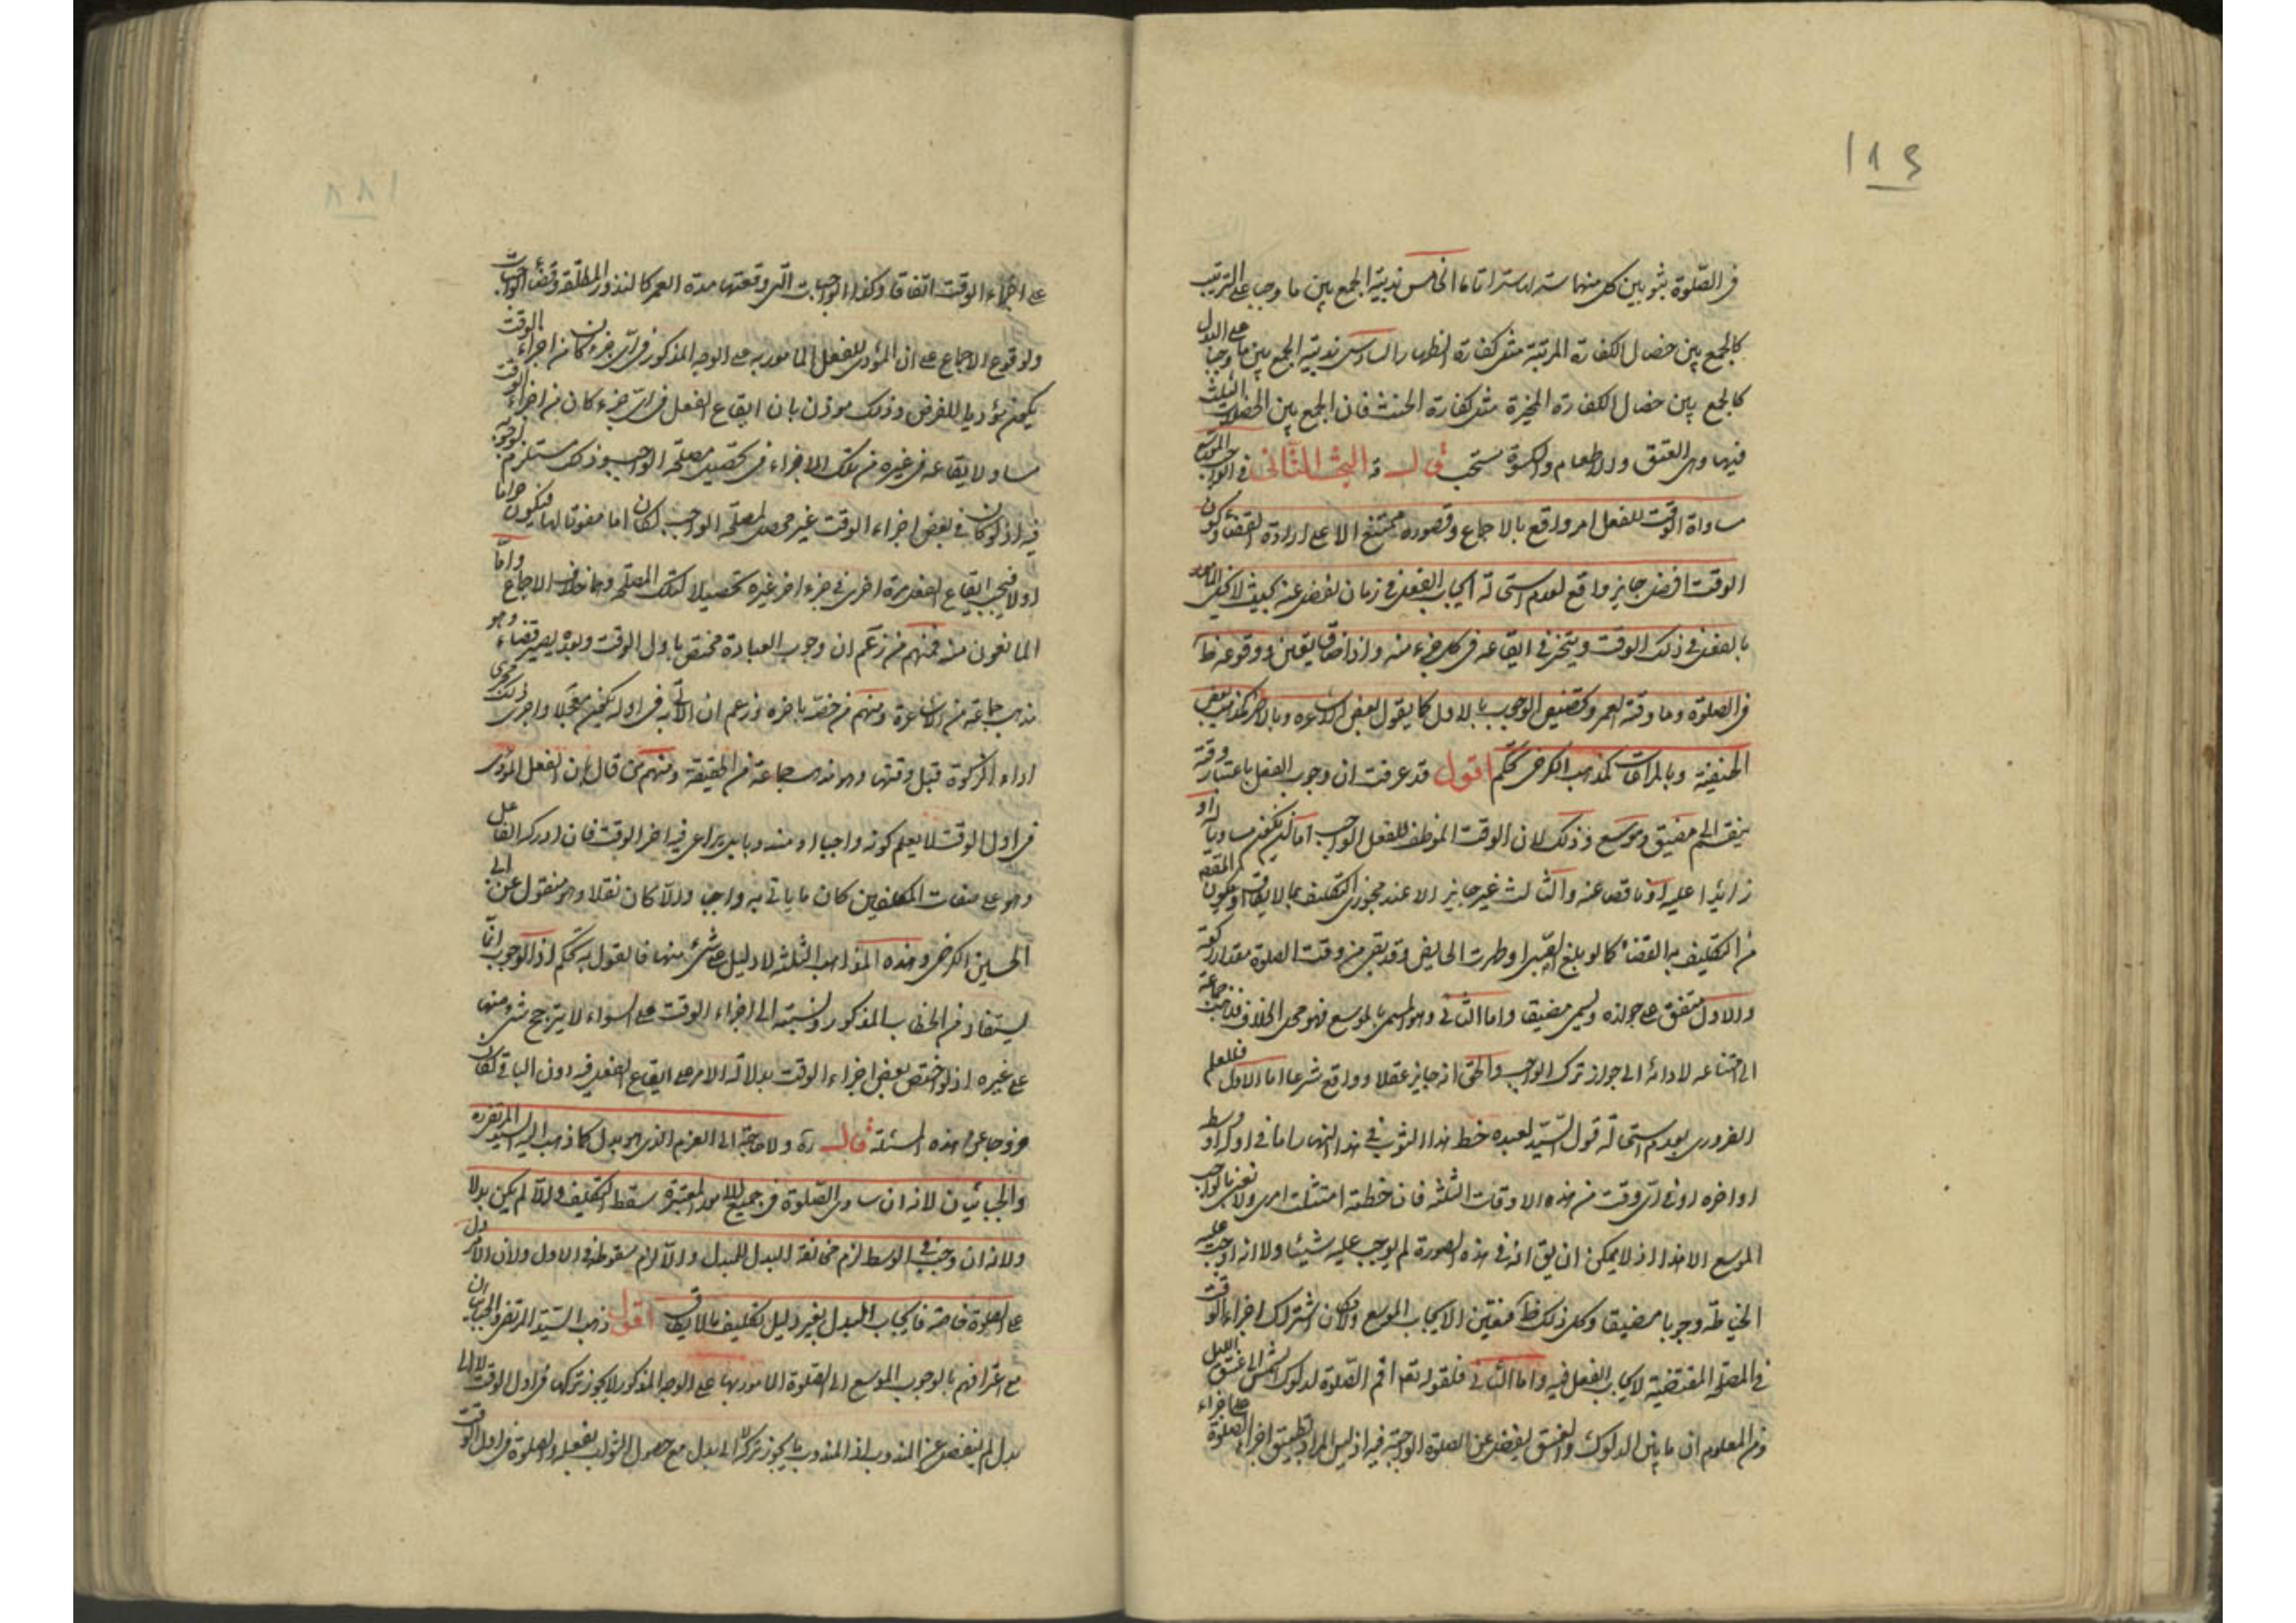 ١٨٤
في الصلوة بثوبين كل منهما ساتر استرا تاما الخامس ندبية الجمع بين ما وجب على الترتيب
كالجمع بين خصال الكفارة المرتبة مثل كفارة الظهار السادس ندبية الجمع بين ما وجبا على البدل
كالجمع بين خصال الكفارة المخيرة مثل كفارة الحنث فان الجمع بين الخصلات الثلث
فيها وهى العتق والاطعام والكسوة مستحب قال ره البحث الثانى في الواجب الموسع
مساواة الوقت للفعل امر واقع بالاجماع وقصوره ممتنع الا على ارادة القضاء وكون
الوقت افضل جايز واقع لعدم استحالة ايجاب الفعل في زمان يفضل عنه بحيث لا يخل المامور
بالفعل في ذلك الوقت ويتخير في ايقاعه في كل جزء منه واذا ضاق يتعين ووقوعه ظ
في الصلوة وما وقته العمر وتخصيص الوجوب بالاول كما يقول بعض الاشاعرة وبالاخر كمذهب بعض
الحنفية وبالمراعات كمذهب الكرخى تحكم اقول قد عرفت ان وجوب الفعل باعتبار وقته
ينقسم الى مضيق وموسع وذلك لان الوقت الموظف للفعل الواجب اما ان يكون مساويا له او
زائدا عليه او ناقصا عنه والثالث غير جايز الا عند مجوزى التكليف بما لا يطاق او يكون المقصود
من التكليف به القضاء كما لو بلغ الصبى او طهرت الحايض وقد بقى من وقت الصلوة مقدار ركعة
والاول متفق على جوازه ويسمى مضيقا واما الثانى وهو المسمى بالموسع فهو محل الخلاف فذهب جماعة
الى امتناعه لادائه الى جواز ترك الواجب والحق انه جايز عقلا وواقع شرعا اما الاول فللعلم
الضرورى بعدم استحالة قول السيد لعبده خط هذا الثوب في هذا النهار اما في اوله او وسطه
او اخره او في اى وقت من هذه الاوقات الثلثة فان خطته امتثلت امرى ولا نعنى بالواجب
الموسع الا هذا اذ لا يمكن ان يق انه في هذه الصورة لم يوجب عليه شيئا ولا انه اوجب عليه
الخياطة وجوبا مضيقا وكل ذلك ظ فتعين الايجاب الموسع ولامكان اشتراك اجزاء الوقت
في المصلحة المقتضية لايجاب الفعل فيه واما الثانى فلقوله تعم اقم الصلوة لدلوك الشمس الى غسق الليل
ومن المعلوم ان ما بين الدلوك والغسق يفضل عن الصلوة الواجبة فيه اذ ليس المراد تطبيق اجزاء الصلوة على اجزاء
١٨٨
على اجزاء الوقت اتفاقا وكذا الواجبات التى وقتها مدة العمر كالنذور المطلقة وقضاء الواجبات
ولوقوع الاجماع على ان المؤدى للفعل المامور به على الوجه المذكور في اى جزء كان من اجزاء الوقت
يكون مؤديا للفرض وذلك موذن بان ايقاع الفعل في اى جزء كان من اجزاء الوقت
مساو لايقاعه في غيره من تلك الاجزاء في تحصيل مصلحة الواجب وذلك مستلزم لوجوبه
فيه اذ لو كان في بعض اجزاء الوقت غير محصل لمصلحة الواجب لكان اما مفوتا لها فيكون حراما
اولا فيجب ايقاع الفعل مرة اخرى في جزء اخر غيره تحصيلا لتلك المصلحة وهما خلاف الاجماع واما
المانعون منه فمنهم من زعم ان وجوب العبادة مختص باول الوقت وبعده يصير قضاء وهو
مذهب جماعة من الاشاعرة ومنهم من خصه باخره وزعم ان الاتى به في اوله يكون معجلا واجرى ذلك مجرى
اداء الزكوة قبل وقتها وهو مذهب جماعة من الحنفية ومنهم من قال بان الفعل المودى
في اول الوقت لا يعلم كونه واجبا او مندوبا بل يراعى فيه اخر الوقت فان ادرك الفاعل
وهو على صفات المكلفين كان ما ياتى به واجبا والا كان نفلا وهو منقول عن ابى
الحسين الكرخى وهذه المذاهب الثلثة لا دليل على شىء منها فالقول به تحكم اذ الوجوب انما
يستفاد من الخطاب المذكور ونسبته الى اجزاء الوقت على السواء لا يترجح شىء منها
على غيره اذ لو اختص بعض اجزاء الوقت بدلالة الامر على ايقاع الفعل فيه دون الباقى لكان
خروجا عن هذه المسئلة قال ره ولا حاجة الى العزم الذى هو بدل كما ذهب اليه السيد المرتضى ره
والجبائيان لانه ان ساوى الصلوة في جميع الامور المعتبرة سقط التكليف والا لم يكن بدلا
ولانه ان وجب في الوسط لزم مخالفة البدل للمبدل والا لزم سقوطه في الاول ولان الامر دل
على الصلوة خاصة فايجاب البدل بغير دليل تكليف بما لا يطاق اقول ذهب السيد المرتضى والجبائيان
مع اعترافهم بالوجوب الموسع الى الصلوة المامور بها على الوجه المذكور لا يجوز تركها في اول الوقت لا الى
بدل لم ينفصل عن المندوب اذ المندوب ما يجوز تركه لا الى بدل مع حصول الثواب بفعله والصلوة في اول الوقت